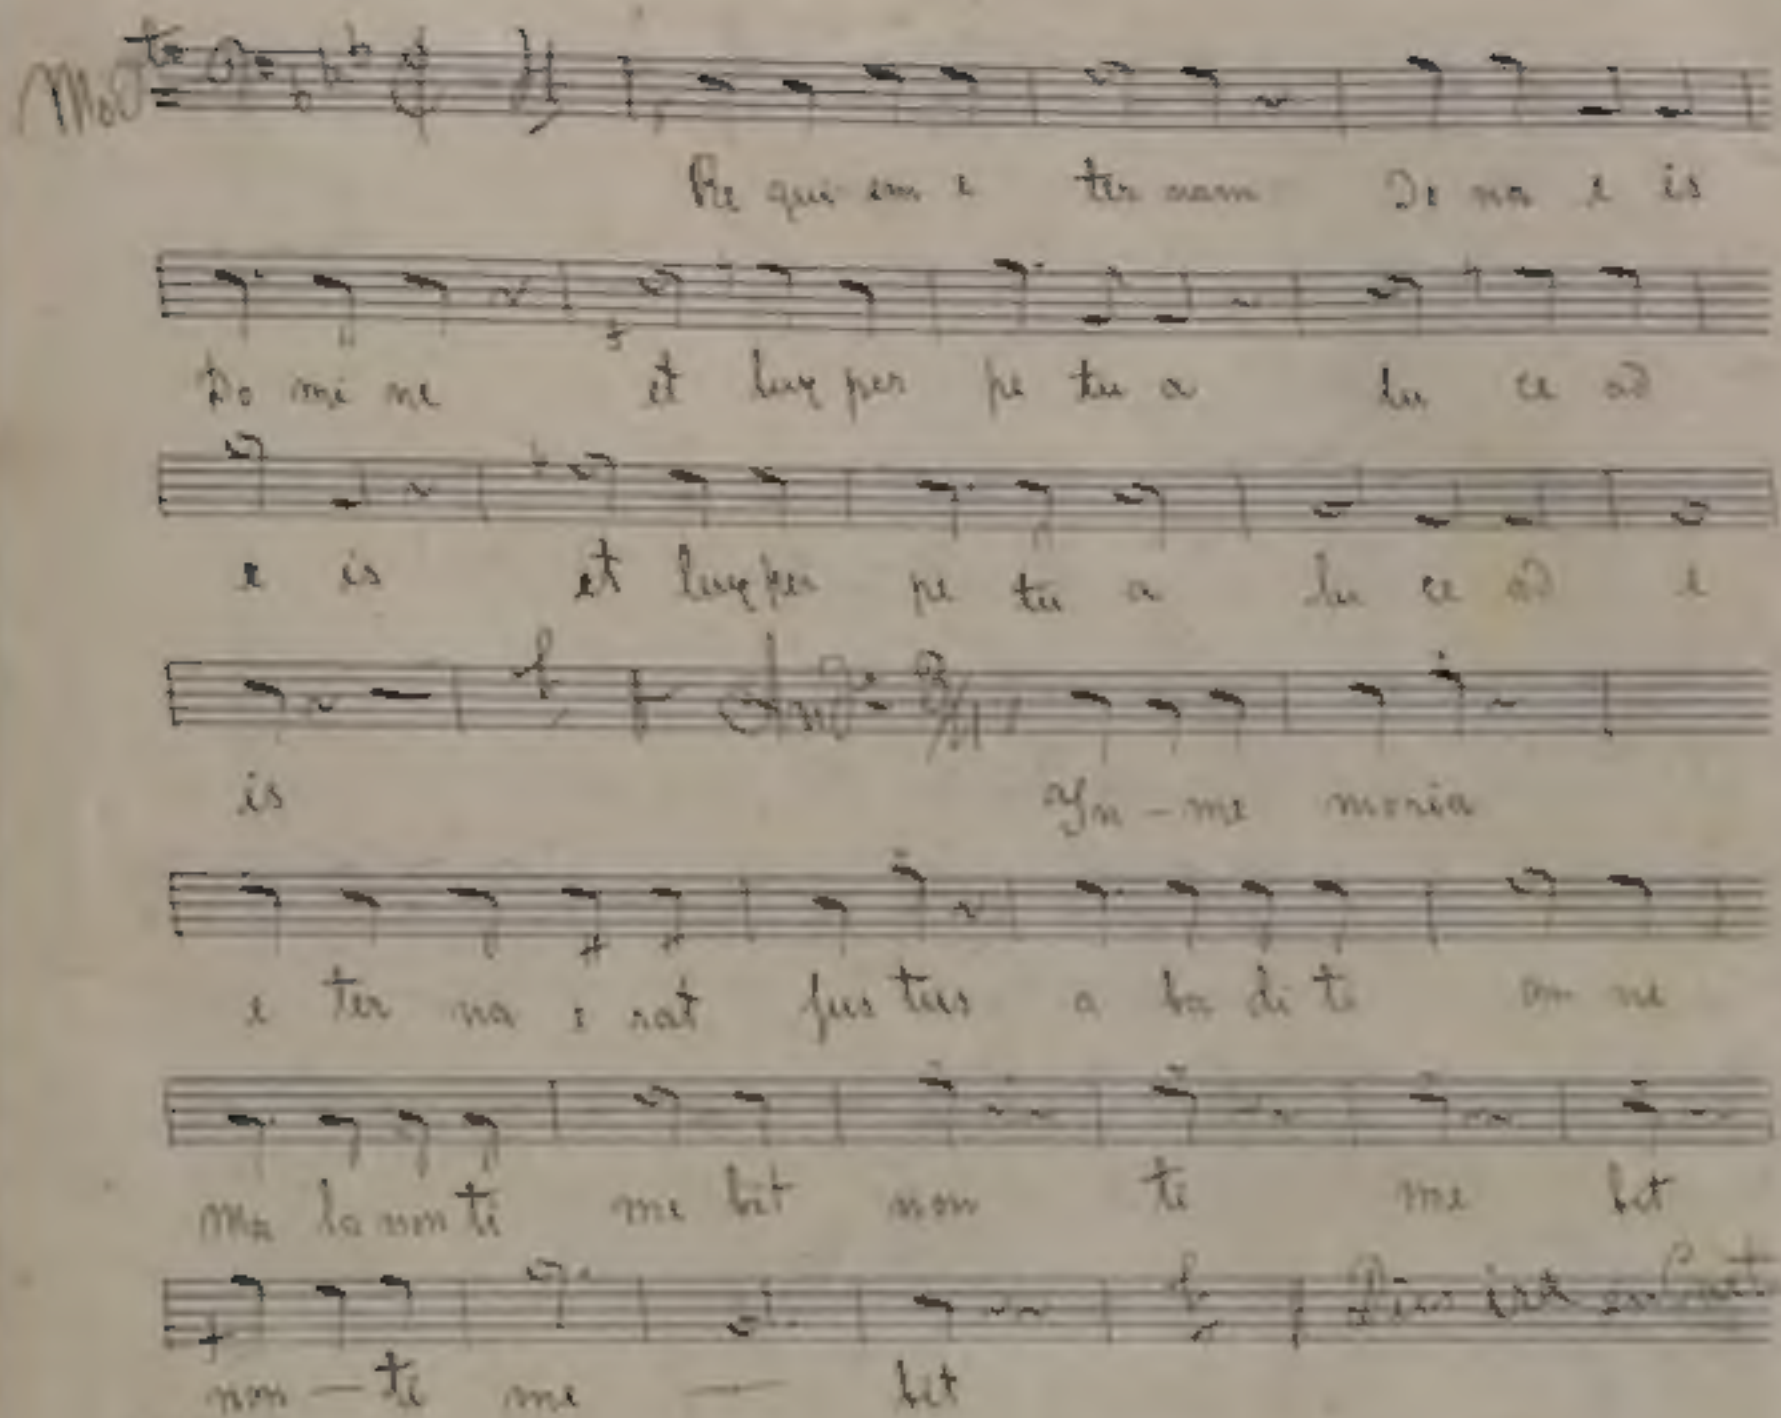 Modto
Re qui em e ter nam Do na e is
Do mi ne et lux per pe tu a lu ce ad
e is et lux per pe tu a lu ce ad e
is And. 3/4 Yn - me moria
e ter na e rat jus tus a ba di ti on ne
Ma la non ti me bit non ti me bit
Dies ire
non - ti me — bit